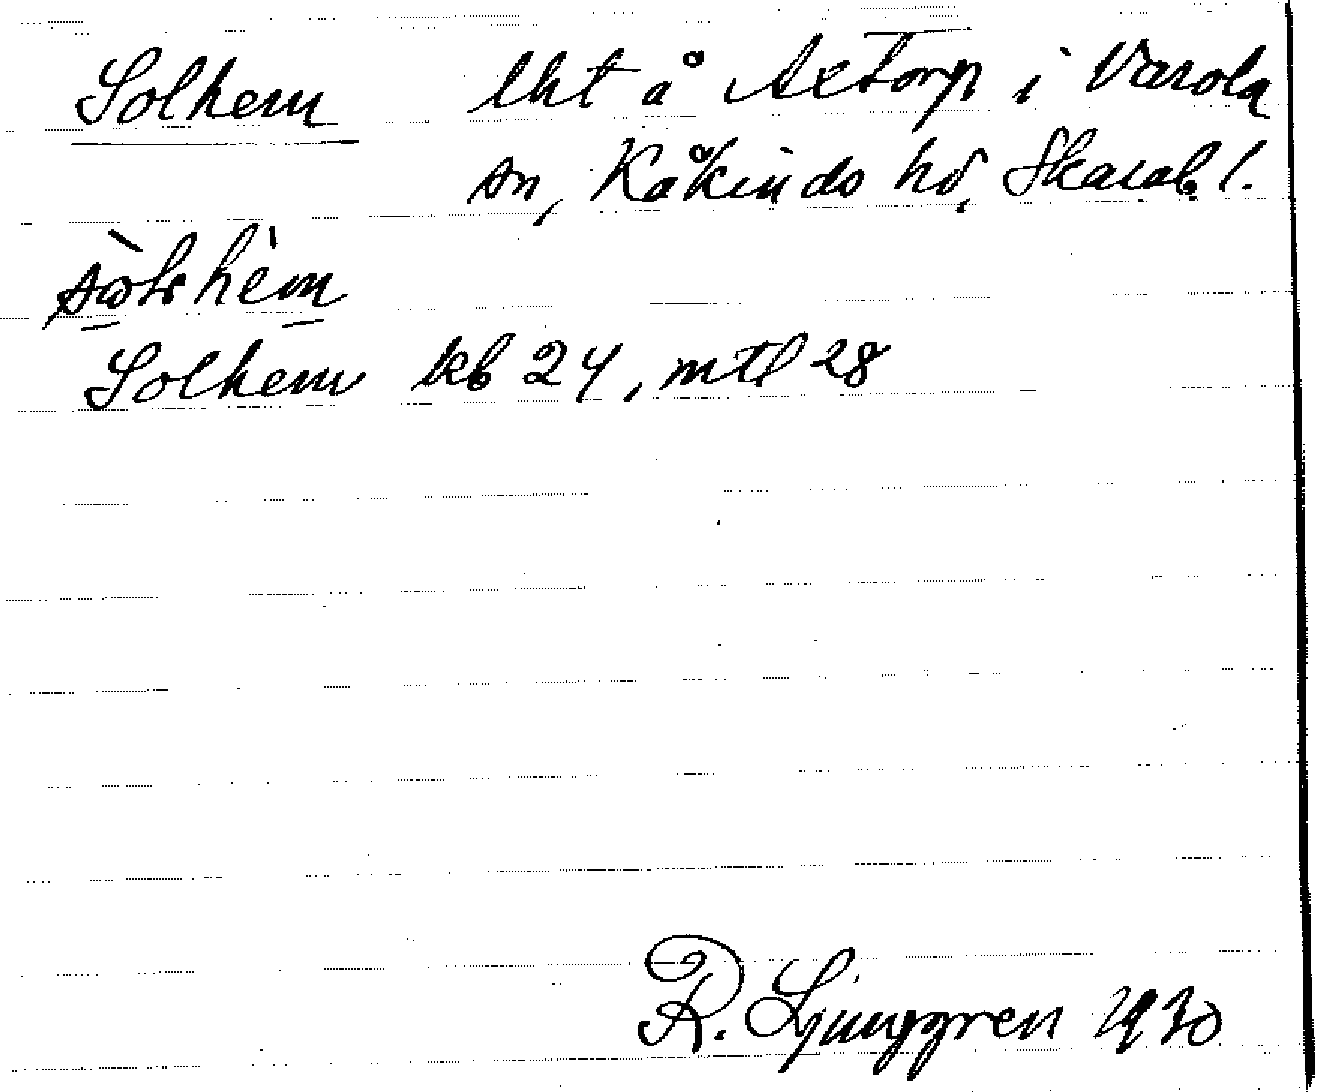 Solhem lht å Axtorp i Varola
sn, Kåkinds hd, Skarab. l.
Solhem kb 24, mtl 28
R. Ljunggren 1930